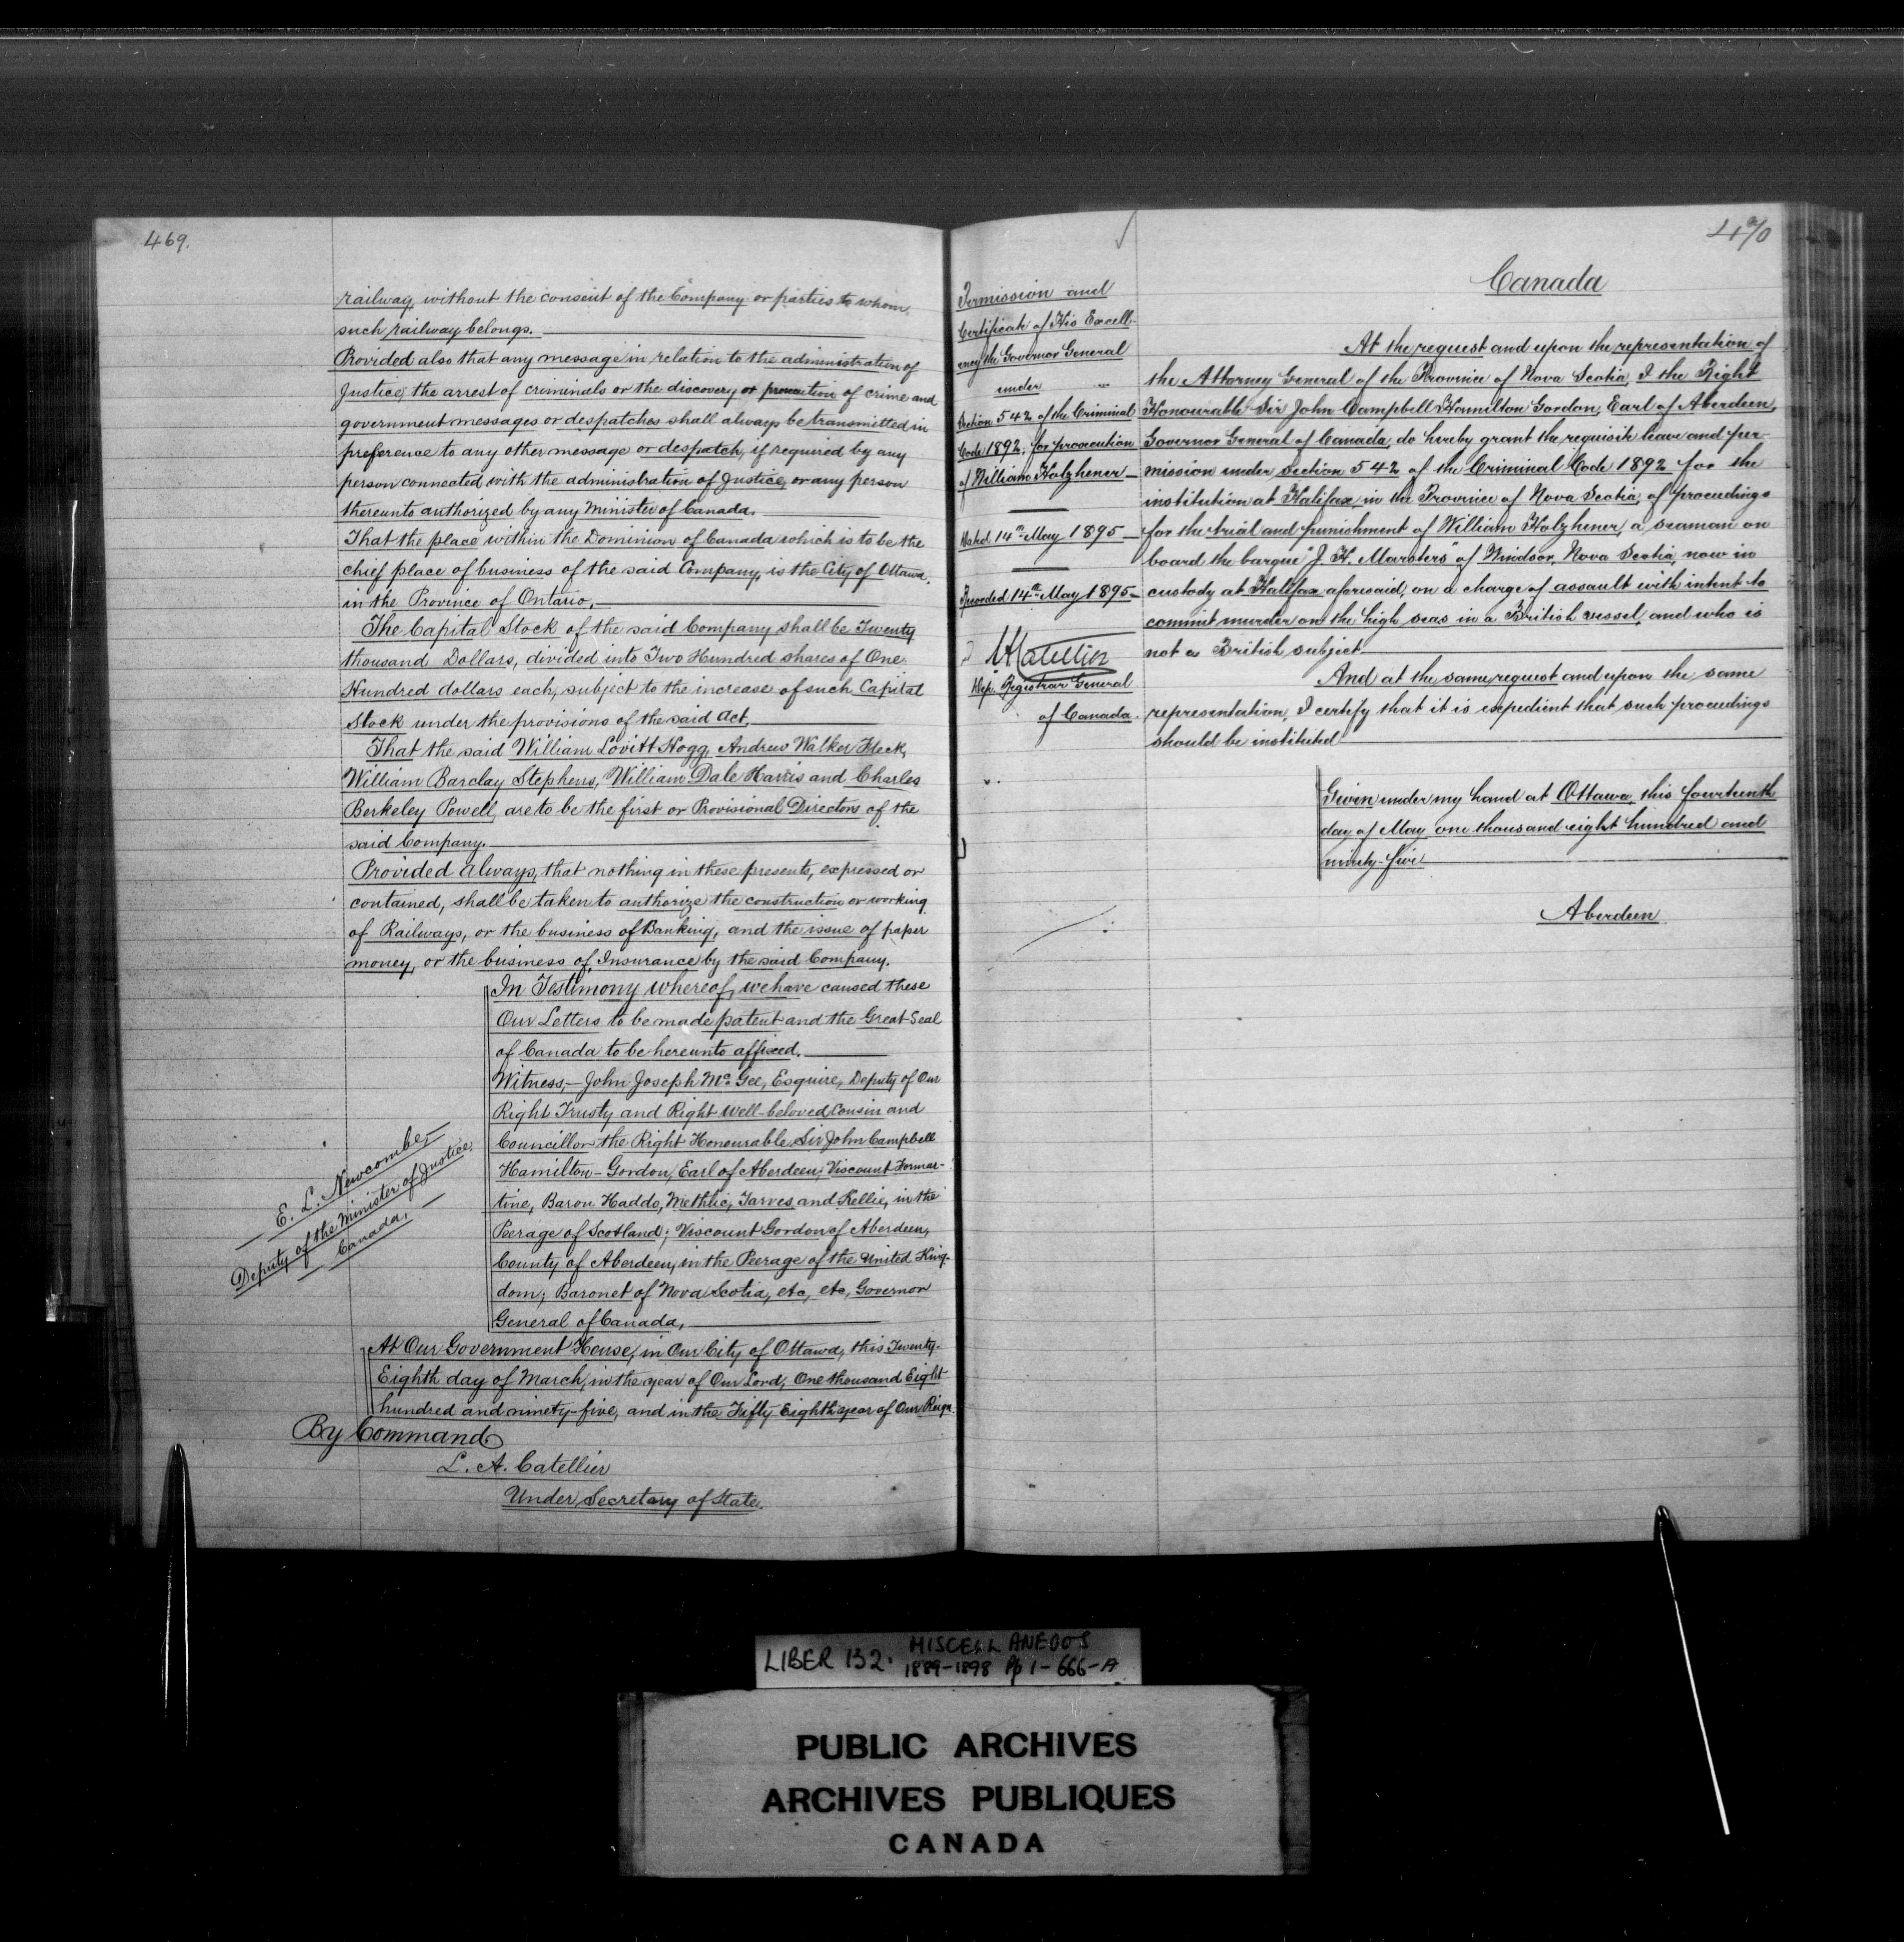 469.
railway, without the consent of the Company or parties to whom
such railway belongs.
Provided also that any message in relation to the administration of
Justice, the arrest of criminals or the discovery or prevention of crime and
government messages or despatches shall always be transmitted in
preference to any other message or despatch, if required by any
person connected with the administration of Justice, or any person
thereunto authorized by any Minister of Canada.
That the place within the Dominion of Canada which is to be the
chief place of business of the said Company, is the City of Ottawa,
in the Province of Ontario.
The Capital Stock of the said Company shall be Twenty
thousand Dollars, divided into Two Hundred shares of One
Hundred dollars each, subject to the increase of such Capital
Stock under the provisions of the said Act.
That the said William Lovitt Hogg, Andrew Walker Fleck,
William Barclay Stephens, William Dale Harris and Charles
Berkeley Powell, are to be the first or Provisional Directors of the
said Company.
Provided Always, that nothing in these presents, expressed or
contained, shall be taken to authorize the construction or working
of Railways, or the business of Banking, and the issue of paper
money, or the business of Insurance by the said Company.
In Testimony whereof, we have caused these
Our Letters to be made patent and the Great Seal
of Canada to be hereunto affixed.
Witness,— John Joseph Mc Gee, Esquire, Deputy of Our
Right Trusty and Right Well-beloved Cousin and
Councillor the Right Honourable Sir John Campbell
Hamilton-Gordon, Earl of Aberdeen; Viscount Formar-
tine, Baron Haddo, Methlic, Tarves and Kellie, in the
Peerage of Scotland; Viscount Gordon of Aberdeen,
County of Aberdeen, in the Peerage of the United King-
dom; Baronet of Nova Scotia, etc, etc, Governor
General of Canada,
E. L. Newcombe,
Deputy of the Minister of Justice,
Canada,
At Our Government House, in Our City of Ottawa, this Twenty-
Eighth day of March, in the year of Our Lord, One thousand Eight
hundred and ninety-five, and in the Fifty Eighth year of Our Reign.
By Command
L. A. Catellier
Under Secretary of State.
470
Permission and
Certificate of His Excell-
ency the Governor General
under
Section 542 of the Criminal
Code 1892, for prosecution
of William Holzhener
Dated 14th May 1895
Recorded 14th May 1895
LACatellier
Dep. Registrar General
of Canada.
Canada
At the request and upon the representation of
the Attorney General of the Province of Nova Scotia, I the Right
Honourable Sir John Campbell Hamilton Gordon, Earl of Aberdeen,
Governor General of Canada, do hereby grant the requisite leave and per-
mission under section 542 of the Criminal Code 1892 for the
institution at Halifax, in the Province of Nova Scotia, of proceedings
for the trial and punishment of William Holzhener, a seaman on
board the barque "J. H. Marsters" of Windsor, Nova Scotia, now in
custody at Halifax aforesaid, on a charge of assault with intent to
commit murder on the high seas in a British vessel, and who is
not a British subject
And at the same request and upon the same
representation, I certify that it is expedient that such proceedings
should be instituted
Given under my hand at Ottawa, this fourteenth
day of May one thousand eight hundred and
ninety-five
Aberdeen
LIBER 132. MISCELLANEOUS
1889-1898 Pp 1-666-A
PUBLIC ARCHIVES
ARCHIVES PUBLIQUES
CANADA